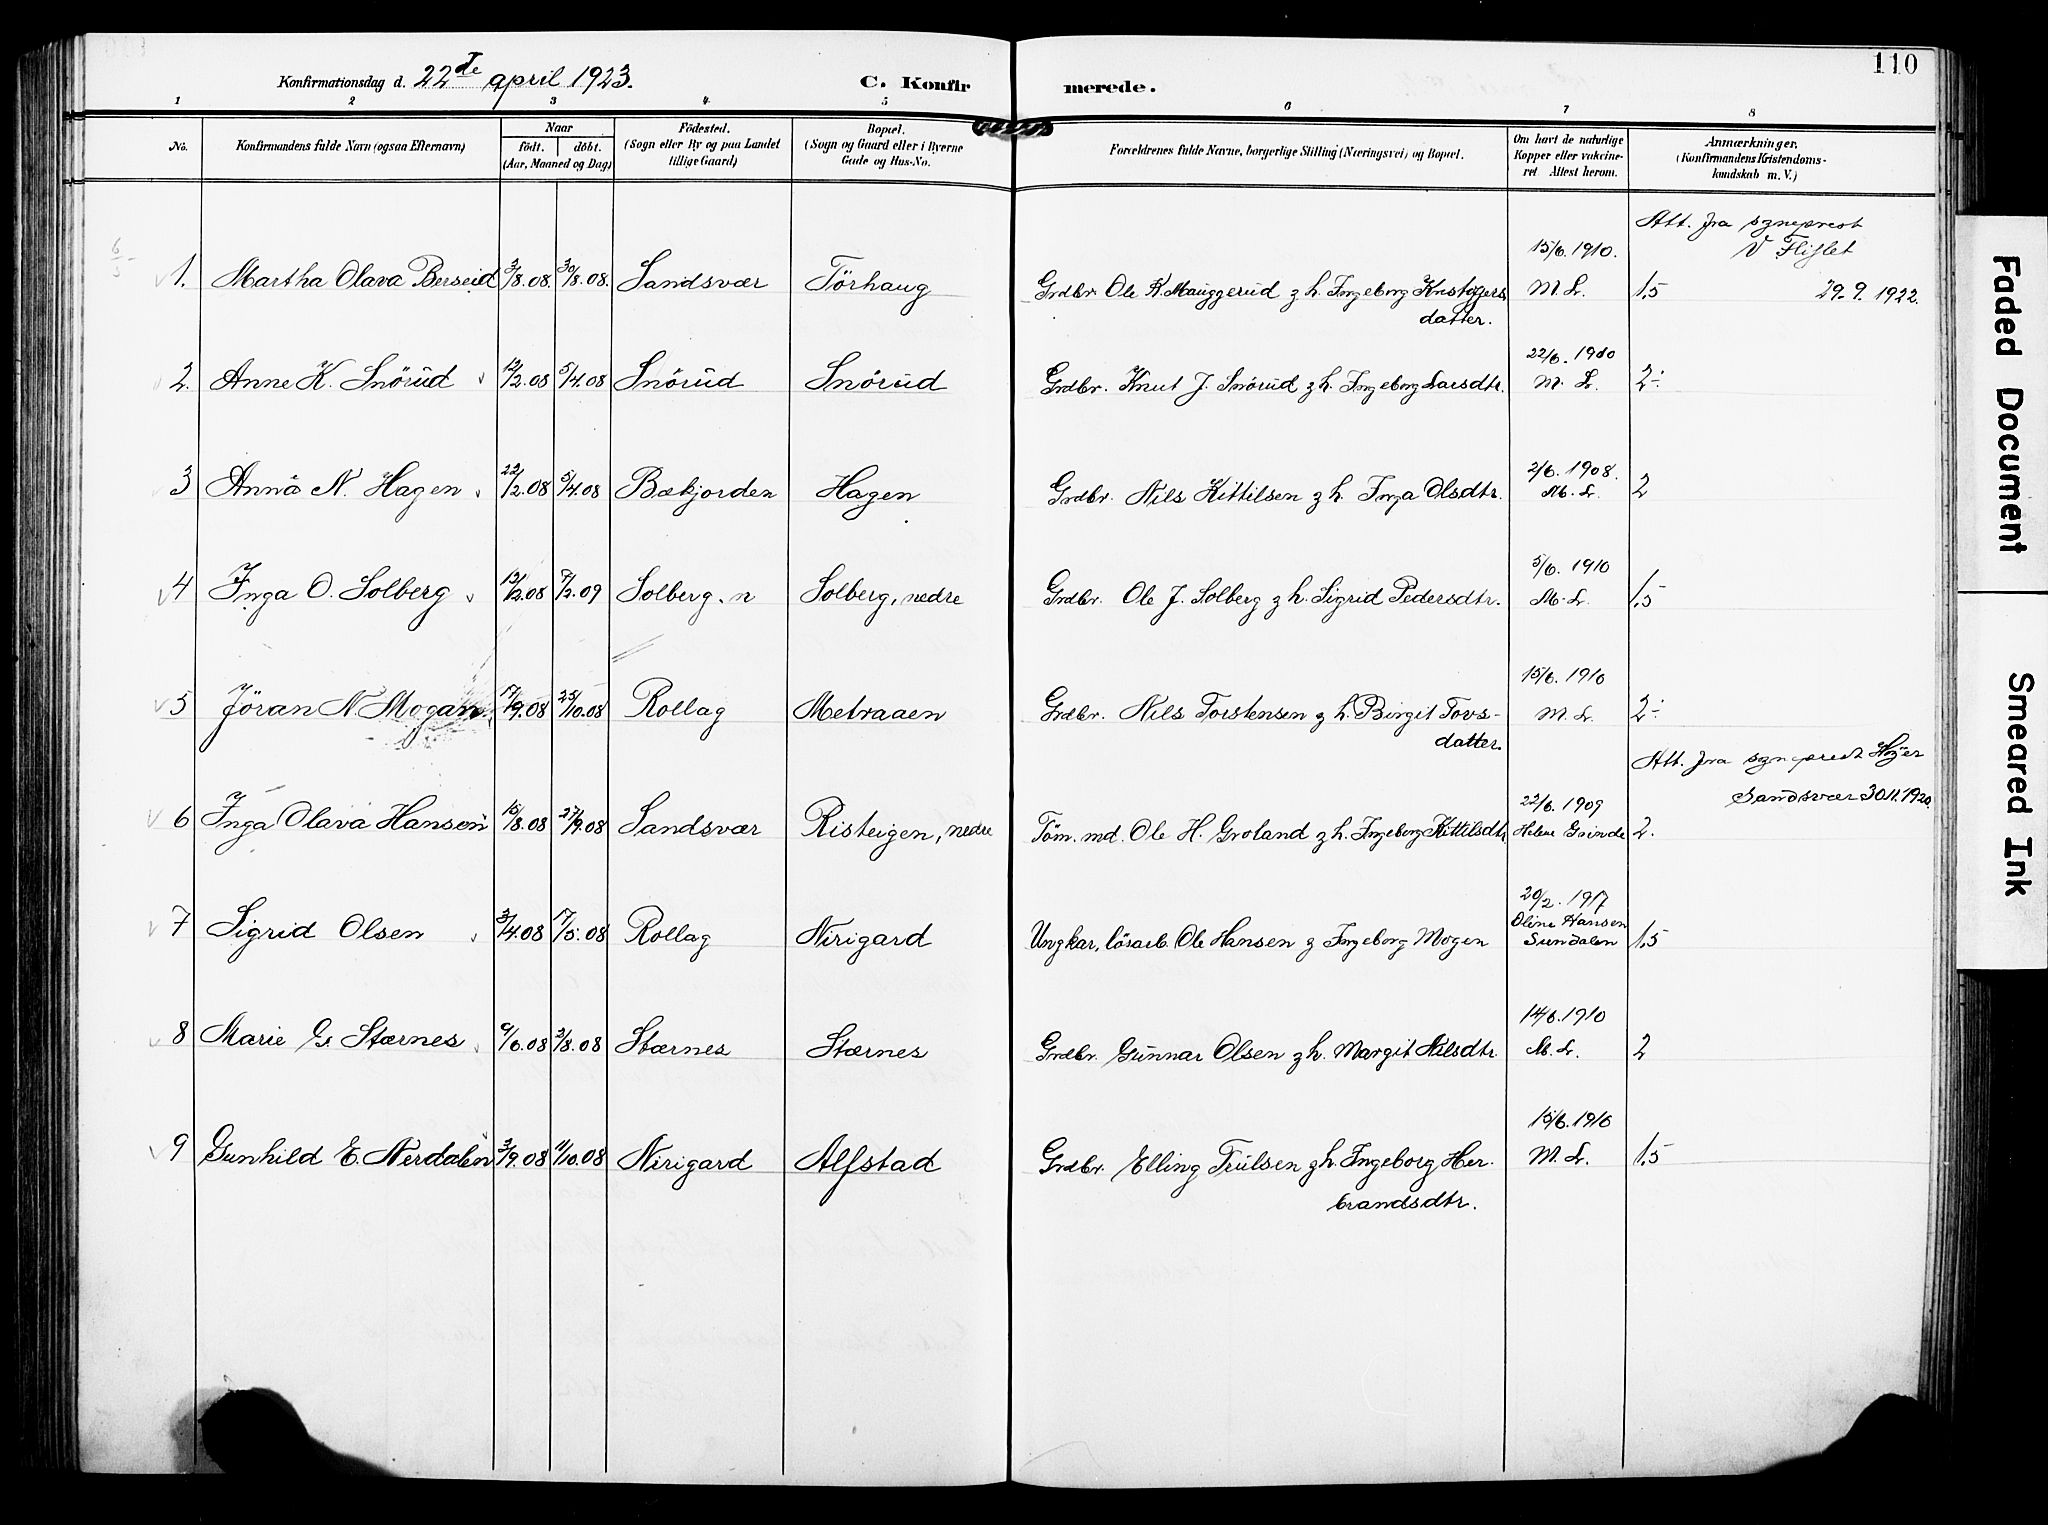 110
Konfirmationsdag d. 22de april 1923. C. Konfir merede.
1 2 3 4 5 6 7 8
No. Konfirmandens fulde Navn (ogsaa Efternavn) Naar födt. döbt. (Aar, Maaned og Dag) Födested. (Sogn eller By og paa Landet tillige Gaard) Bopæl. (Sogn og Gaard eller i Byerne Gade og Hus-No. Forældrenes fulde Navne, borgerlige Stilling (Næringsvei) og Bopæl. Om havt de naturlige Kopper eller vakcineret Attest herom. Anmærkninger. (Konfirmandens Kristendomskundskab m. V.)
Att. fra sogneprest
V Fliflet
15/6. 1910.
1. Martha Olava Berseid 3/8.08. 30/8.08. Sandsvær Törhaug Grdbr. Ole K. Mauggerud g h. Ingeborg Kristoffers M L. 1,5 29. 9. 1922.
datter.
22/6. 1910
2. Anne K. Snörud 12/2.08 5/4.08 Snörud Snörud Grdbr. Knut J. Snörud g h. Ingeborg Larsdtr. M. L. 2÷
2/6. 1908.
3 Anna N. Hagen 22/2.08 5/4.08 Bækjorden Hagen Grdbr. Nils Kittilsen g h. Inga Olsdtr. M. L. 2
5/6. 1910
4 Inga O. Solberg 13/12.08 7/2.09 Solberg. n Solberg, nedre Grdbr. Ole J. Solberg g h. Sigrid Pedersdtr. M. L. 1,5
15/6. 1910
5 Jöran N Mogan 17/9.08 25/10.08 Rollag Metraaen Grdbr. Nils Torstensen g h. Birgit Tovs- M. L. 2÷
datter.
Att. fra sogneprest Höjer
Sandsvær 30.11.1920.
22/6. 1909
6 Inga Olava Hansen 15/8.08 27/9.08 Sandsvær Risteigen, nedre Töm. md. Ole H. Groland g h. Ingeborg Kittilsdtr. Helene Grinde 2.
20/2. 1917
Oline Hansen
7 Sigrid Olsen 3/4.08 17/5.08 Rollag Nirigard Ungkar, lösarb. Ole Hansen g Ingeborg Mogen Sundalen 1,5
14/6. 1910
8 Marie G. Stærnes 9/6.08 2/8.08 Stærnes Stærnes Grdbr. Gunnar Olsen g h. Margit Nilsdtr. M. L. 2
15/6. 1910
9 Gunhild E. Nerdalen 3/9.08 11/10.08 Nirigard Alfstad Grdbr. Elling Trulsen g h. Ingeborg Her- M. L. 1,5
brandsdtr.
Faded Document
Smeared Ink